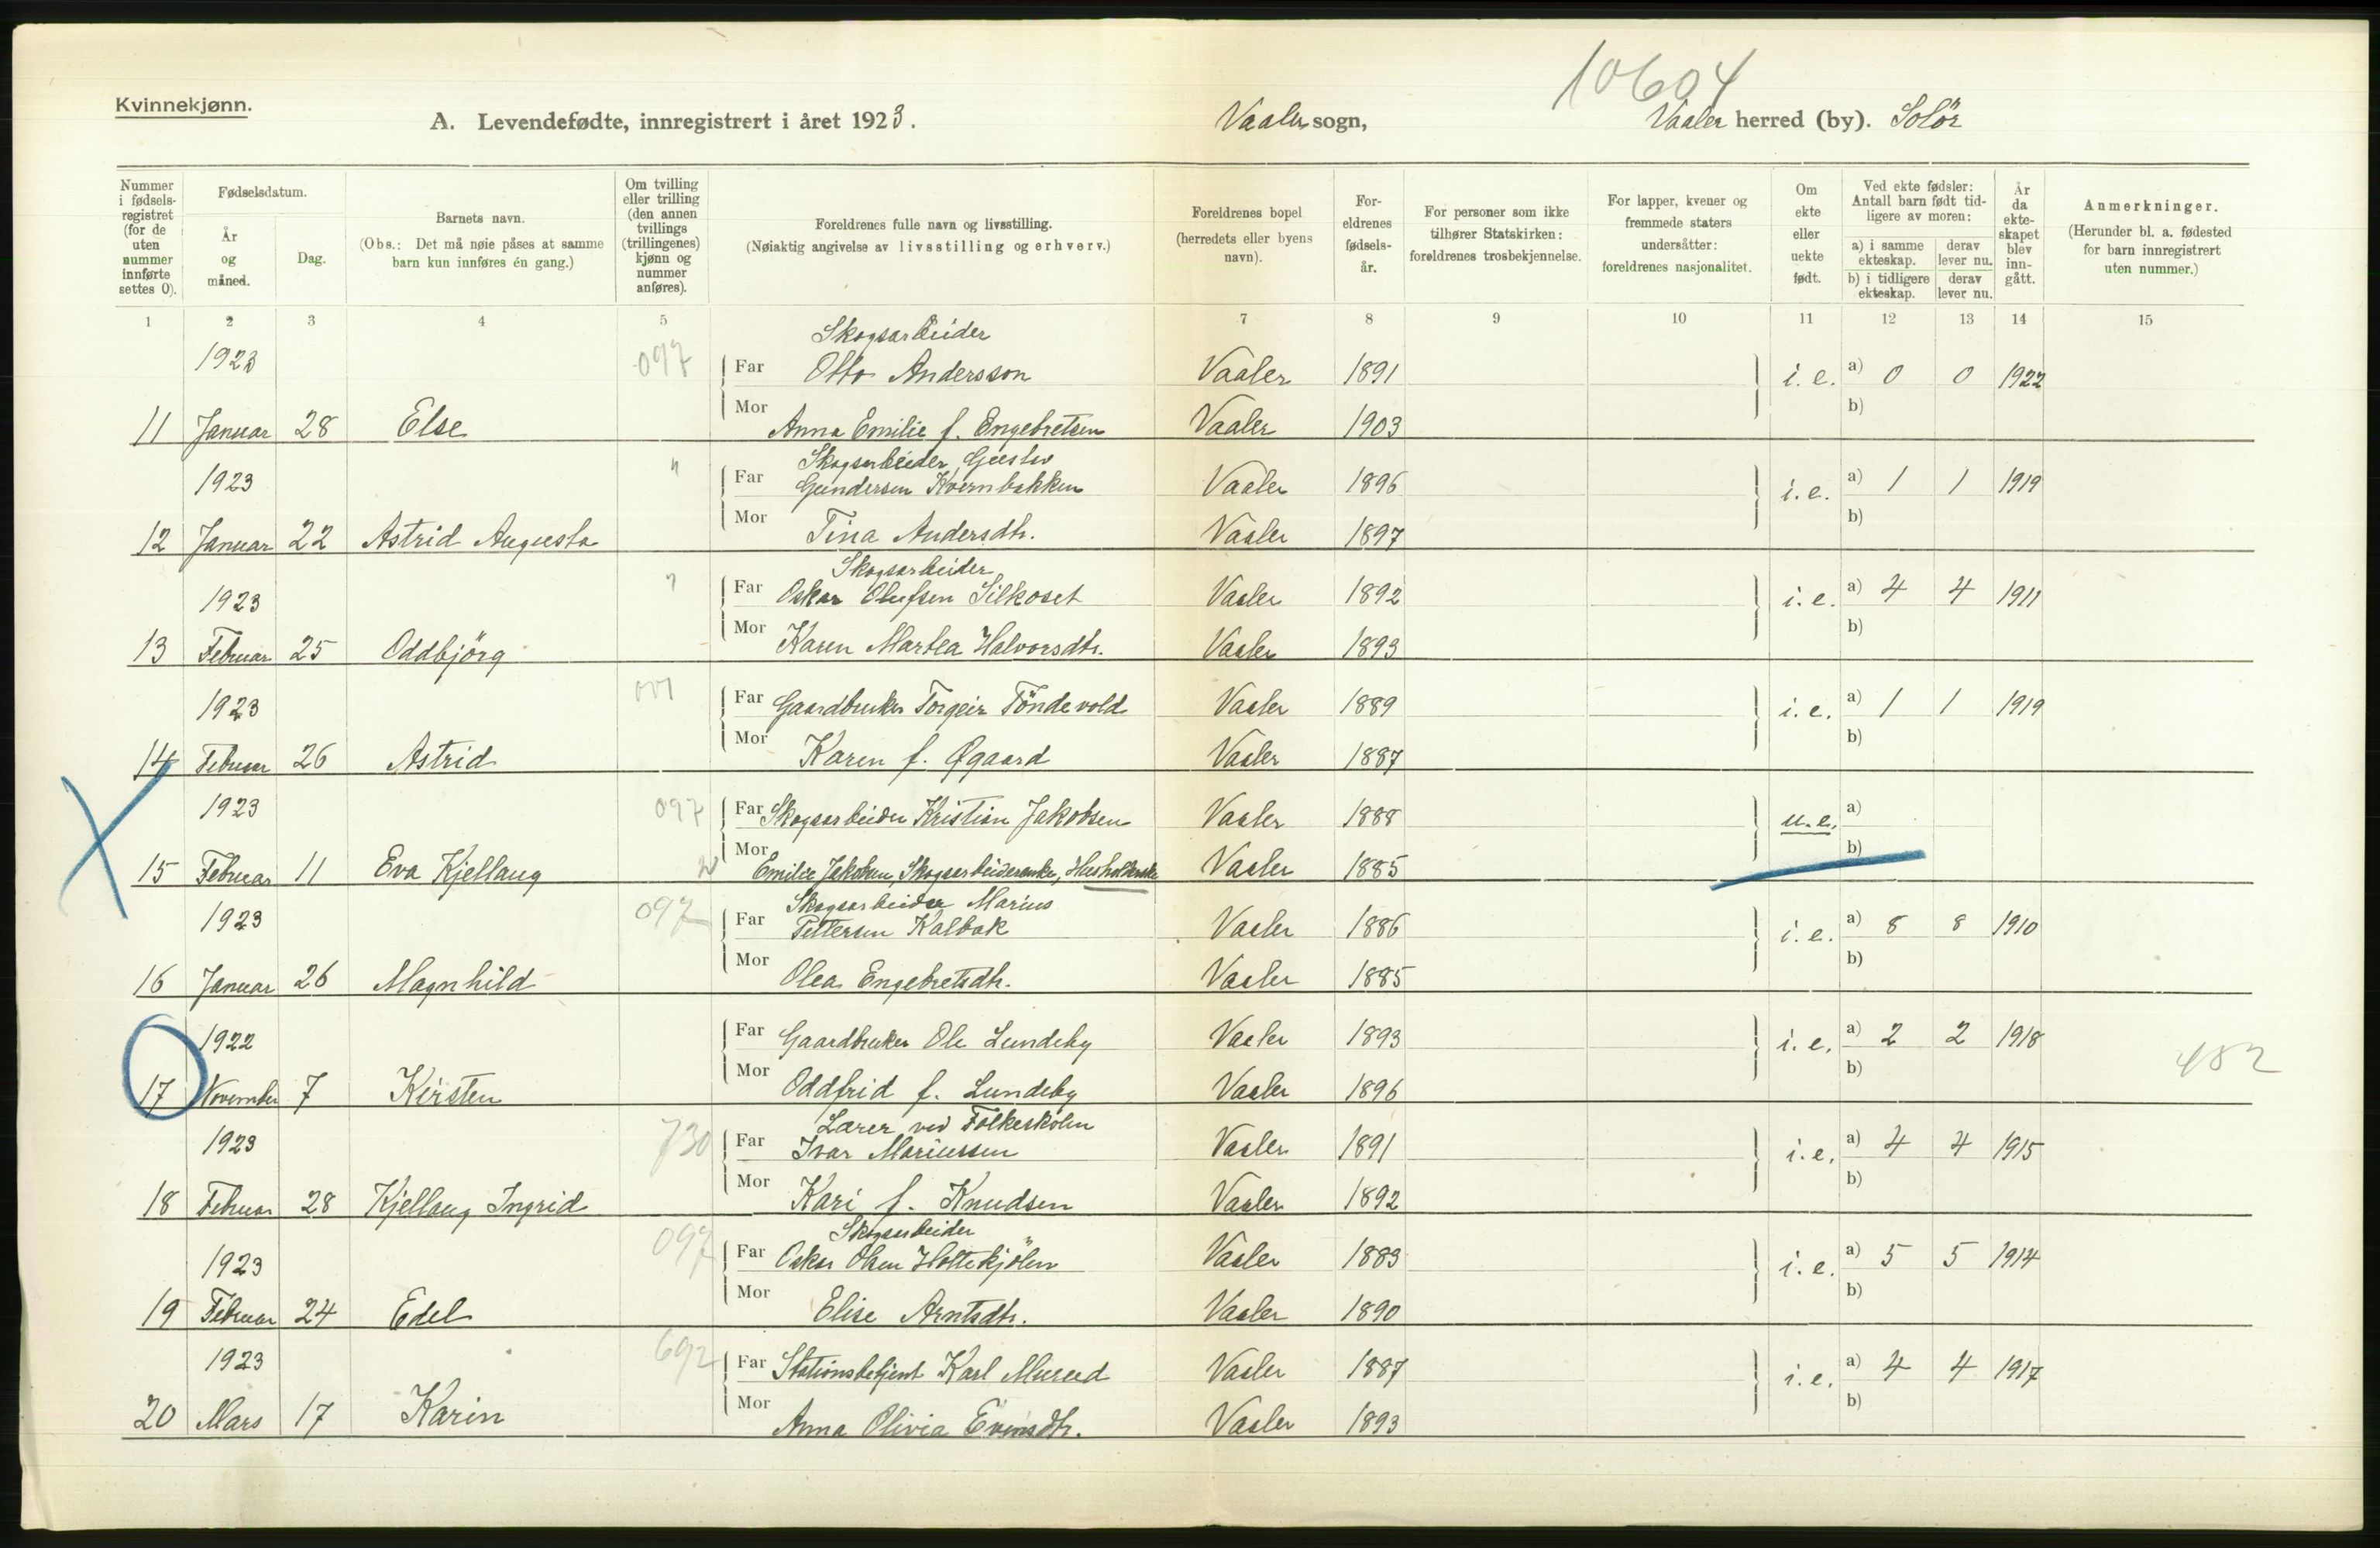 10604
Kvinnekjønn.
A. Levendefødte, innregistrert i året 1923. Vaaler sogn, Vaaler herred (by). Solör
Nummer i fødselsregistret (for de uten nummer innførte settes 0).
Fødselsdatum.
År og måned.
Dag.
Barnets navn.
(Obs.: Det må nøie påses at samme barn kun innføres én gang.)
Om tvilling eller trilling (den annen tvillings (trillingenes) kjønn og nummer anføres).
Foreldrenes fulle navn og livsstilling.
(Nøiaktig angivelse av livsstilling og erhverv.)
Foreldrenes bopel (herredets eller byens navn).
Foreldrenes fødselsår.
For personer som ikke tilhører Statskirken: foreldrenes trosbekjennelse.
For lapper, kvener og fremmede staters undersåtter: foreldrenes nasjonalitet.
Om ekte eller uekte født.
Ved ekte fødsler: Antall barn født tidligere av moren:
a) i samme ekteskap.
derav lever nu.
b) i tidligere ekteskap.
derav lever nu.
År da ekteskapet blev inngått.
Anmerkninger.
(Herunder bl. a. fødested for barn innregistrert uten nummer.)
1 2 3 4 5 7 8 9 10 11 12 13 14 15
Skogsarbeider
1923 097 Far Otto Andersson Vaaler 1891 i. e. a) 0 0 1922
b)
11 Januar 28 Else Mor Anna Emilie f. Engebretsen Vaaler 1903
Skogsarbeider Gustav
1923 " Far Gundersen Kvernbakken Vaaler 1896 i. e. a) 1 1 1919
b)
12 Januar 22 Astrid Augusta Mor Tina Andersdtr. Vaaler 1897
Skogsarbeider
1923 " Far Oskar Olufsen Silkoset Vaaler 1892 i. e. a) 4 4 1911
b)
13 Februar 25 Oddbjörg Mor Karen Martea Halvorsdtr. Vaaler 1893
1923 001 Far Gaardbruker Torgeir Töndevold Vaaler 1889 i. e. a) 1 1 1919
b)
14 Februar 26 Astrid Mor Karen f. Øgaard Vaaler 1887
1923 097 Far Skogsarbeider Kristian Jakobsen Vaaler 1888 u. e. a)
b)
15 Februar 11 Eva Kjellaug Mor Emilie Jakobsen, Skogsarbeiderenke, Husholderske Vaaler 1885
Skogsarbeider Marius
1923 097 Far Pettersen Kalbak Vaaler 1886 i. e. a) 8 8 1910
b)
16 Januar 26 Magnhild Mor Olea Engebretsdtr. Vaaler 1885
1922 Far Gaardbruker Ole Lundeby Vaaler 1893 i. e. a) 2 2 1918
b) 482
17 November 7 Kirsten Mor Oddfrid f. Lundeby Vaaler 1896
Lærer ved Folkeskolen
1923 730 Far Ivar Mariussen Vaaler 1891 i. e. a) 4 4 1915
b)
18 Februar 28 Kjellaug Ingrid Mor Kari f. Knudsen Vaaler 1892
Skogsarbeider
1923 097 Far Oskar Olsen Holtekjölen Vaaler 1883 i. e. a) 5 5 1914
b)
19 Februar 24 Edel Mor Elise Arntsdtr. Vaaler 1890
1923 692 Far Stationsbetjent Karl Murud Vaaler 1887 i. e. a) 4 4 1917
b)
20 Mars 17 Karin Mor Anna Olivia Evensdtr. Vaaler 1893